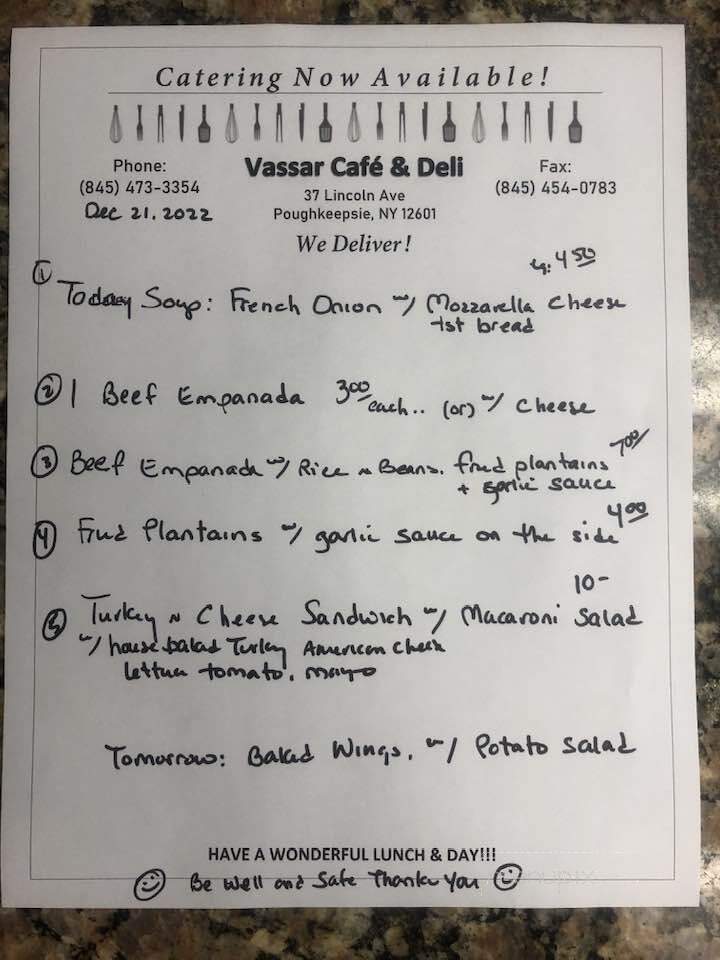 Catering Now Available!
Phone:
(845) 473-3354
Dec 21, 2022
Vassar Café & Deli
37 Lincoln Ave
Poughkeepsie, NY 12601
We Deliver!
Fax:
(845) 454-0783
lg: 4 50
① Today Soup: French Onion w/ Mozzarella Cheese
tst bread
② 1 Beef Empanada 3 00 each.. (or) w/ Cheese
7 00/
③ Beef Empanada w/ Rice n Beans. fried plantains
+ garlic sauce
4 00
④ Fried Plantains w/ garlic sauce on the side
10-
⑤ Turkey n Cheese Sandwich w/ Macaroni Salad
w/ house baked Turkey American Cheese
lettuce tomato, mayo
Tomorrow: Baked Wings, w/ Potato Salad
HAVE A WONDERFUL LUNCH & DAY!!!
Be Well and Safe Thank You